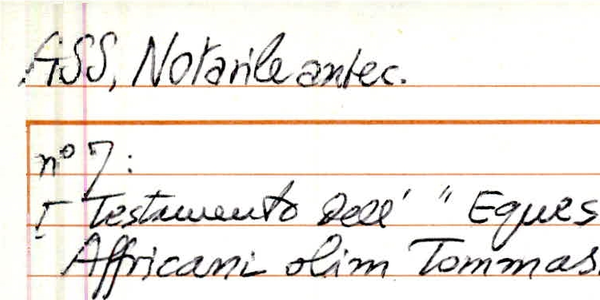 ASS, Notarile antec.
nº 7:
I Testamento dell' " Eques
Affricani olim Tommas